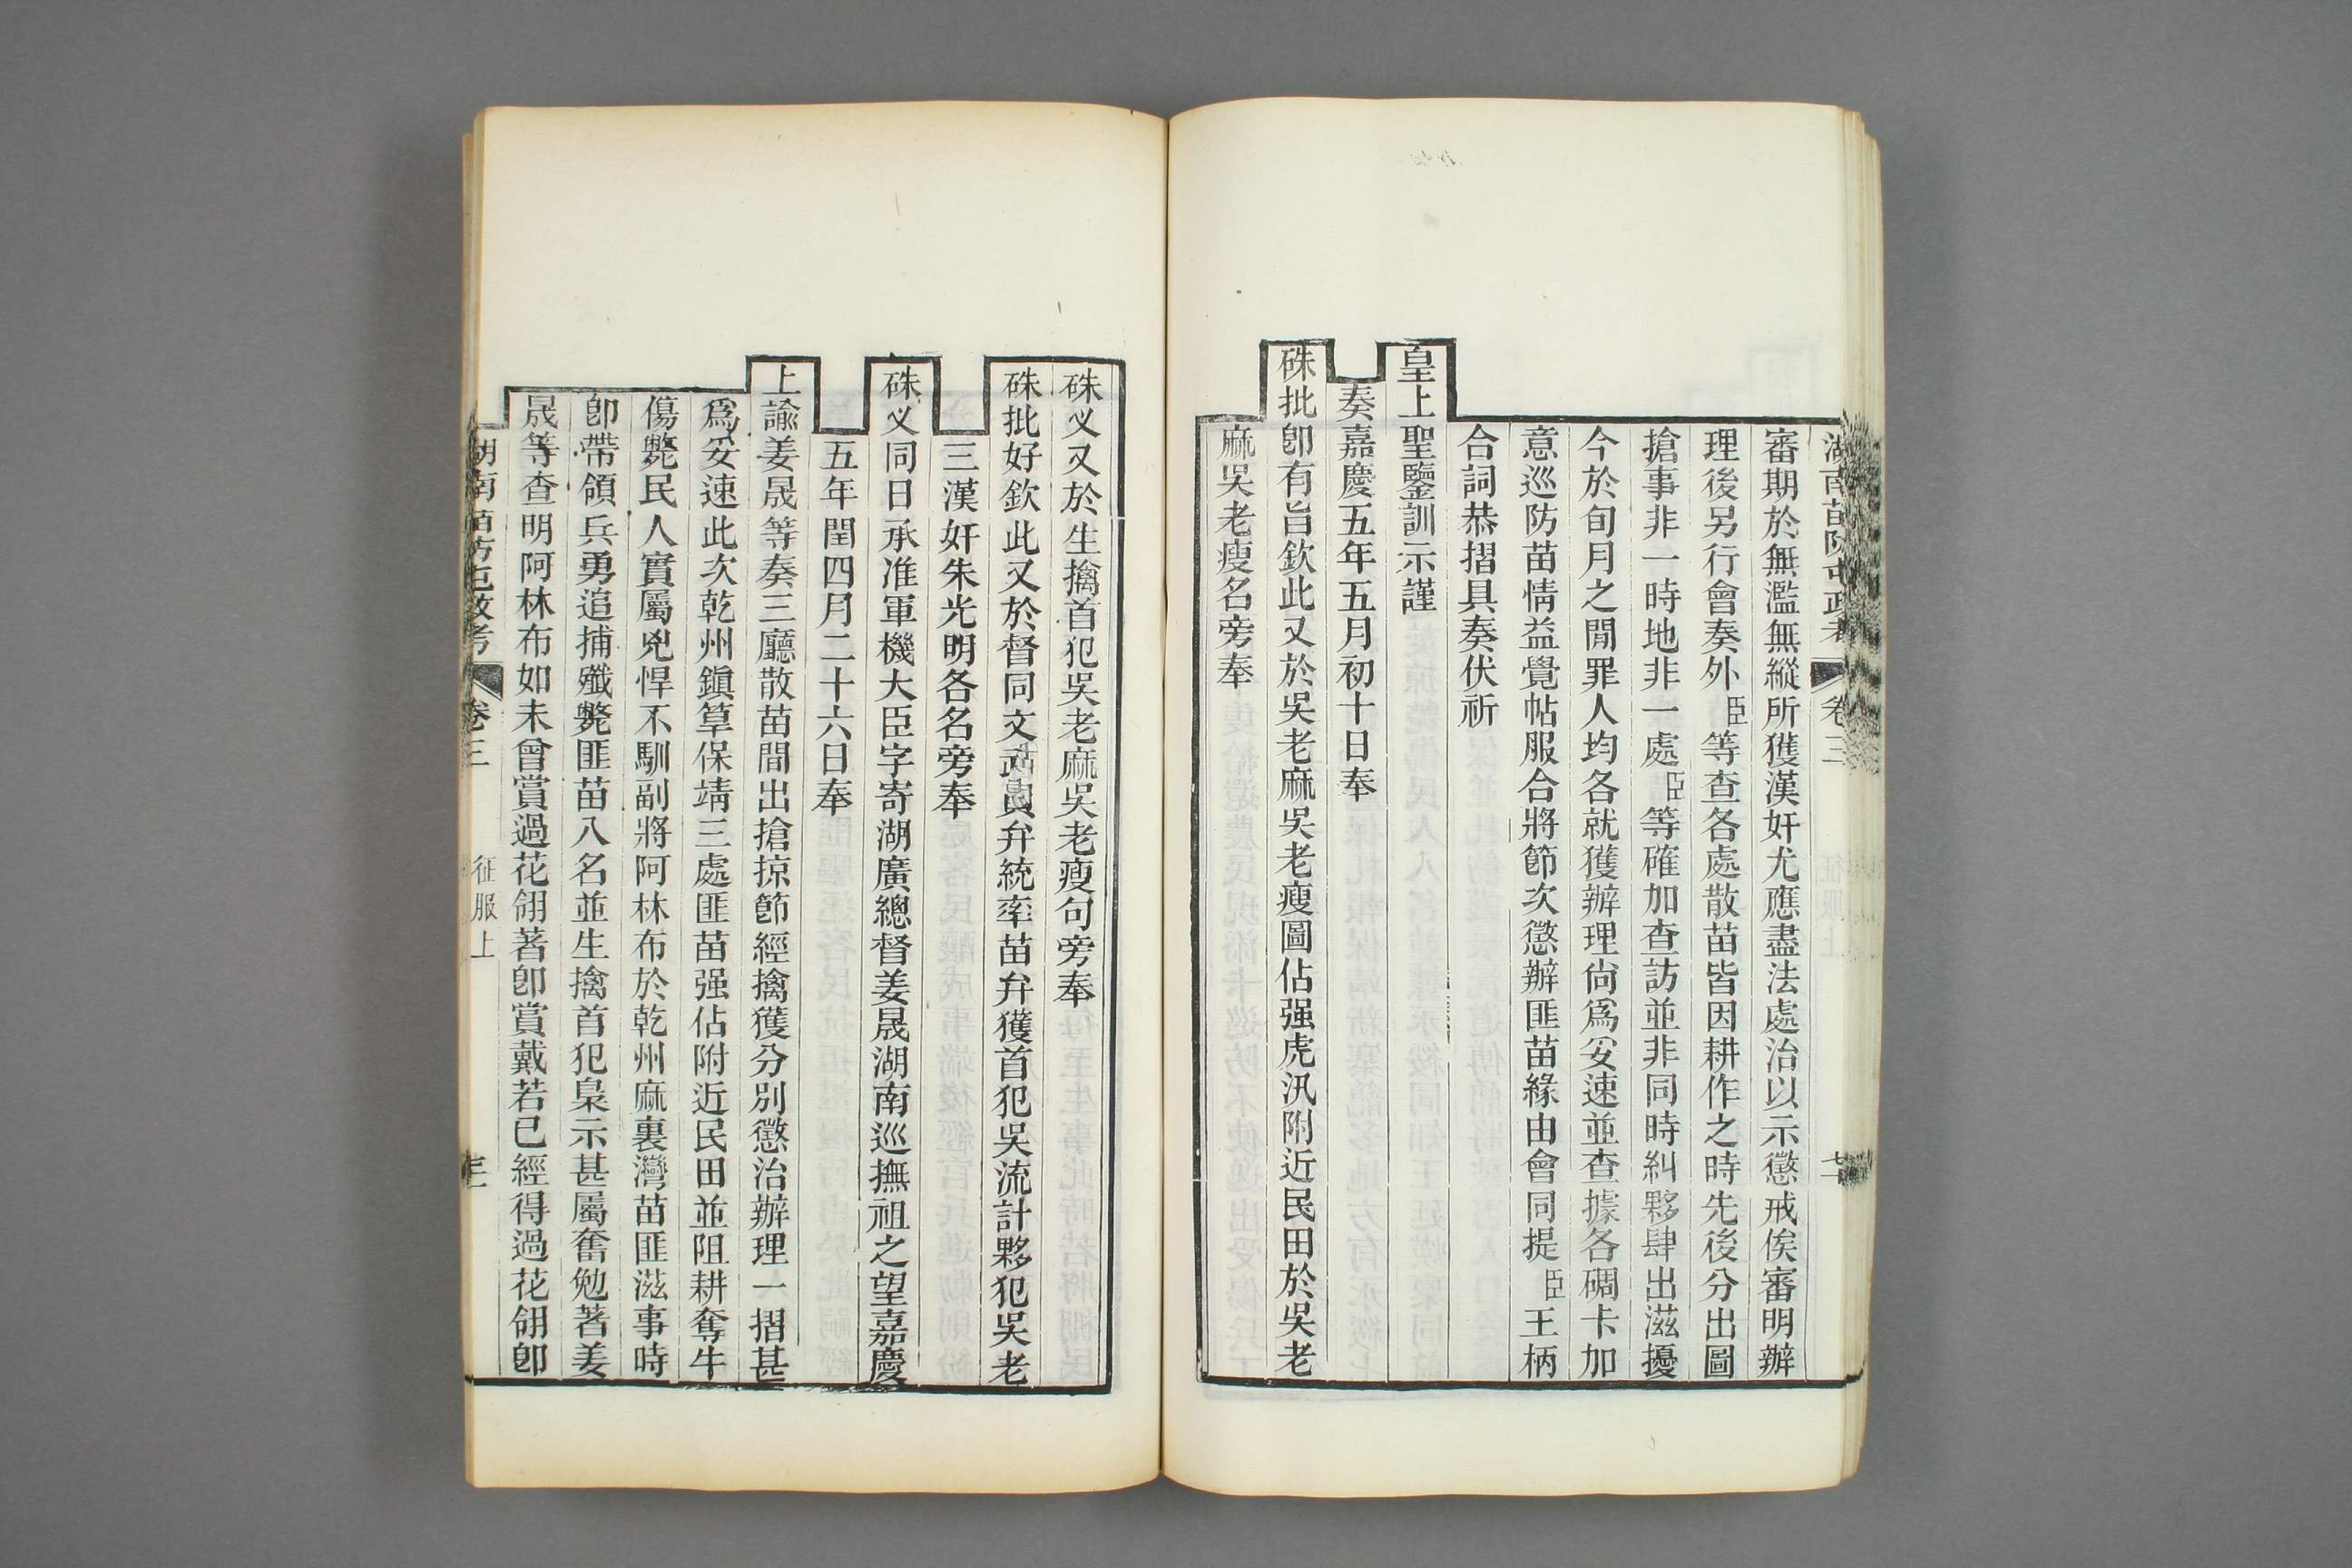 湖南苗防屯政考 卷三
審期於無濫無縱所獲漢奸尤應盡法處治以示懲戒俟審明辦
理後另行會奏外臣等查各處散苗皆因耕作之時先後分出圖
搶事非一時地非一處臣等確加查訪並非同時糾夥肆出滋擾
今於旬月之閒罪人均各就獲辦理尙爲妥速並查據各碉卡加
意巡防苗情益覺帖服合將節次懲辦匪苗緣由會同提臣王柄
合詞恭摺具奏伏祈
皇上聖鑒訓示謹
奏嘉慶五年五月初十日奉
硃批卽有旨欽此又於吳老麻吳老瘦圖佔强虎汛附近民田於吳老
麻吳老瘦名旁奉
硃乂又於生擒首犯吳老麻吳老瘦句旁奉
硃批好欽此又於督同文武員弁統率苗弁獲首犯吳流計夥犯吳老
三漢奸朱光明各名旁奉
硃乂同日承准軍機大臣字寄湖廣總督姜晟湖南巡撫祖之望嘉慶
五年閏四月二十六日奉
上諭姜晟等奏三廳散苗間出搶掠節經擒獲分別懲治辦理一摺甚
爲妥速此次乾州鎮筸保靖三處匪苗强佔附近民田並阻耕奪牛
傷斃民人實屬兇悍不馴副將阿林布於乾州麻裏灣苗匪滋事時
卽帶領兵勇追捕殲斃匪苗八名並生擒首犯梟示甚屬奮勉著姜
晟等查明阿林布如未曾賞過花翎著卽賞戴若已經得過花翎卽
湖南苗防屯政考 卷三 征服上